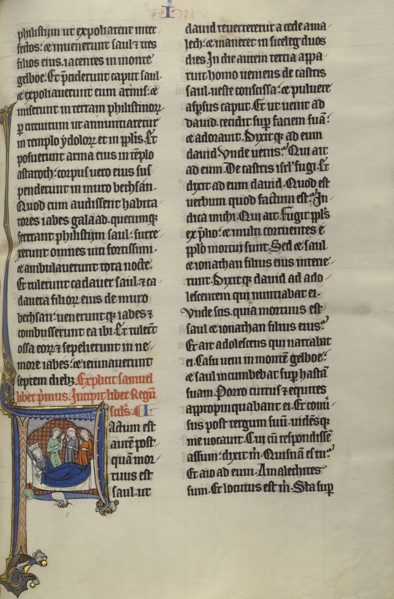 I
philistiim ut expoliarent inter
fectos: et invenerunt saul et tres
filios eius iacentes in monte
gelboe. Et preciderunt caput saul
et expoliaverunt eum armis: et
miserunt in terram philistinorum
per circuitum ut annuntiaretur
in templo ydolorum et in populis. Et
posuerunt arma eius in templo
astaroth: corpus vero eius sus
penderunt in muro bethsan.
Quod cum audissent habita
tores iabes galaad. quecumque
fecerant philistiim saul: surre
xerunt omnes viri fortissimi.
et ambulaverunt tota nocte.
Et tulerunt cadaver saul et ca
davera filiorum eius de muro
bethsan: veneruntque iabes et
combusserunt ea ibi. Et tulerunt
ossa eorum et sepelierunt in ne
more iabes: et ieiunaverunt
septem diebus. Explicit samuel
liber primus. Incipit liber Regum
scds. C I.
actum est
autem post
quam mor
tuus est
saul. ut
david reverteretur a cede ama
lech: et maneret in siceleg duos
dies. In die autem tertia appa
ruit homo veniens de castris
saul. veste conscissa: et pulvere
aspersus caput. Et ut venit ad
david. cecidit super faciem suam:
et adoravit. Dixitque ad eum
david. Unde venis? Qui ait
ad eum. De castris israel fugi. Et
dixit ad eum david. Quod est
verbum quod factum est? In
dica michi. Qui ait. Fugit populus
ex prelio: et multi corruentes e
populo mortui sunt. Sed et saul
et ionathan filius eius interie
runt. Dixitque david ad ado
lescentem qui nuntiabat ei.
Unde scis. quia mortuus est
saul et ionathan filius eius?
Et ait adolescens qui narrabat
ei. Casu veni in montem gelboe:
et saul incumbebat super hastam
suam. Porro currus et equites
appropinquabant ei. Et conver
sus post tergum suum. vidensque
me vocavit. Cui cum respondissem
assum: dixit michi. Quisnam es tu?
Et aio ad eum. Amalechites
sum. Et locutus est michi. Sta super